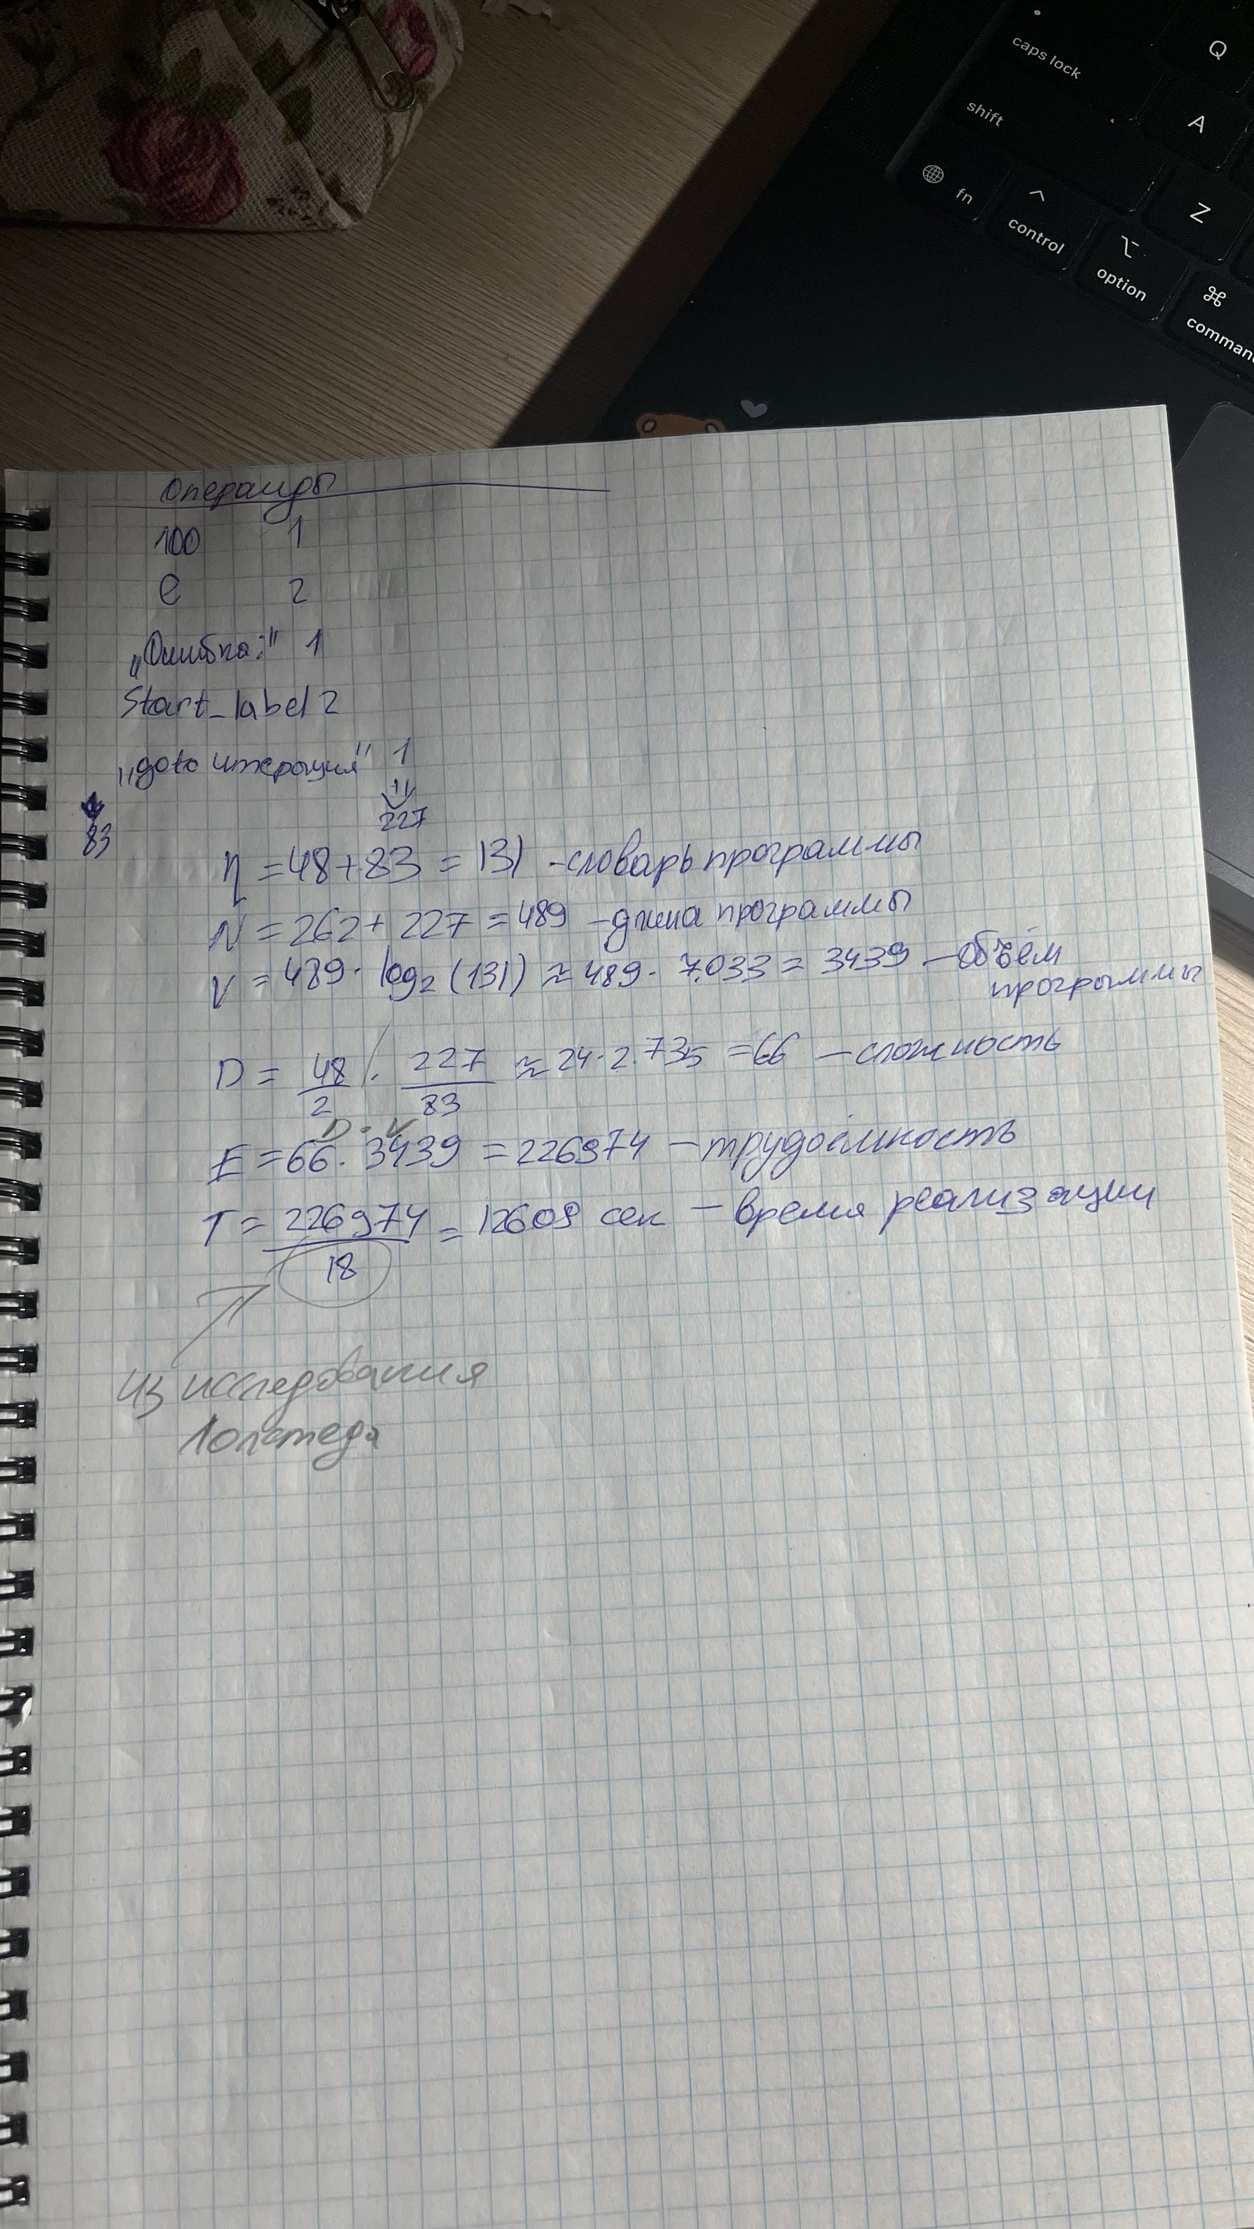 Q
caps lock
A
shift
Z
fn
control
option
command
Операнды
100 1
e 2
"Ошибка:" 1
Start_label 2
"goto итерация" 1
227
83
η = 48 + 83 = 131 - словарь программы
N = 262 + 227 = 489 - длина программы
V = 489 · log₂ (131) ≈ 489 · 7.033 = 3439 - объём
программы
D = 48/2 · 227/83 ≈ 24 · 2.735 = 66 - сложность
D · V
E = 66 · 3439 = 226974 - трудоёмкость
T = 226974/18 = 12609 сек - время реализации
из исследования